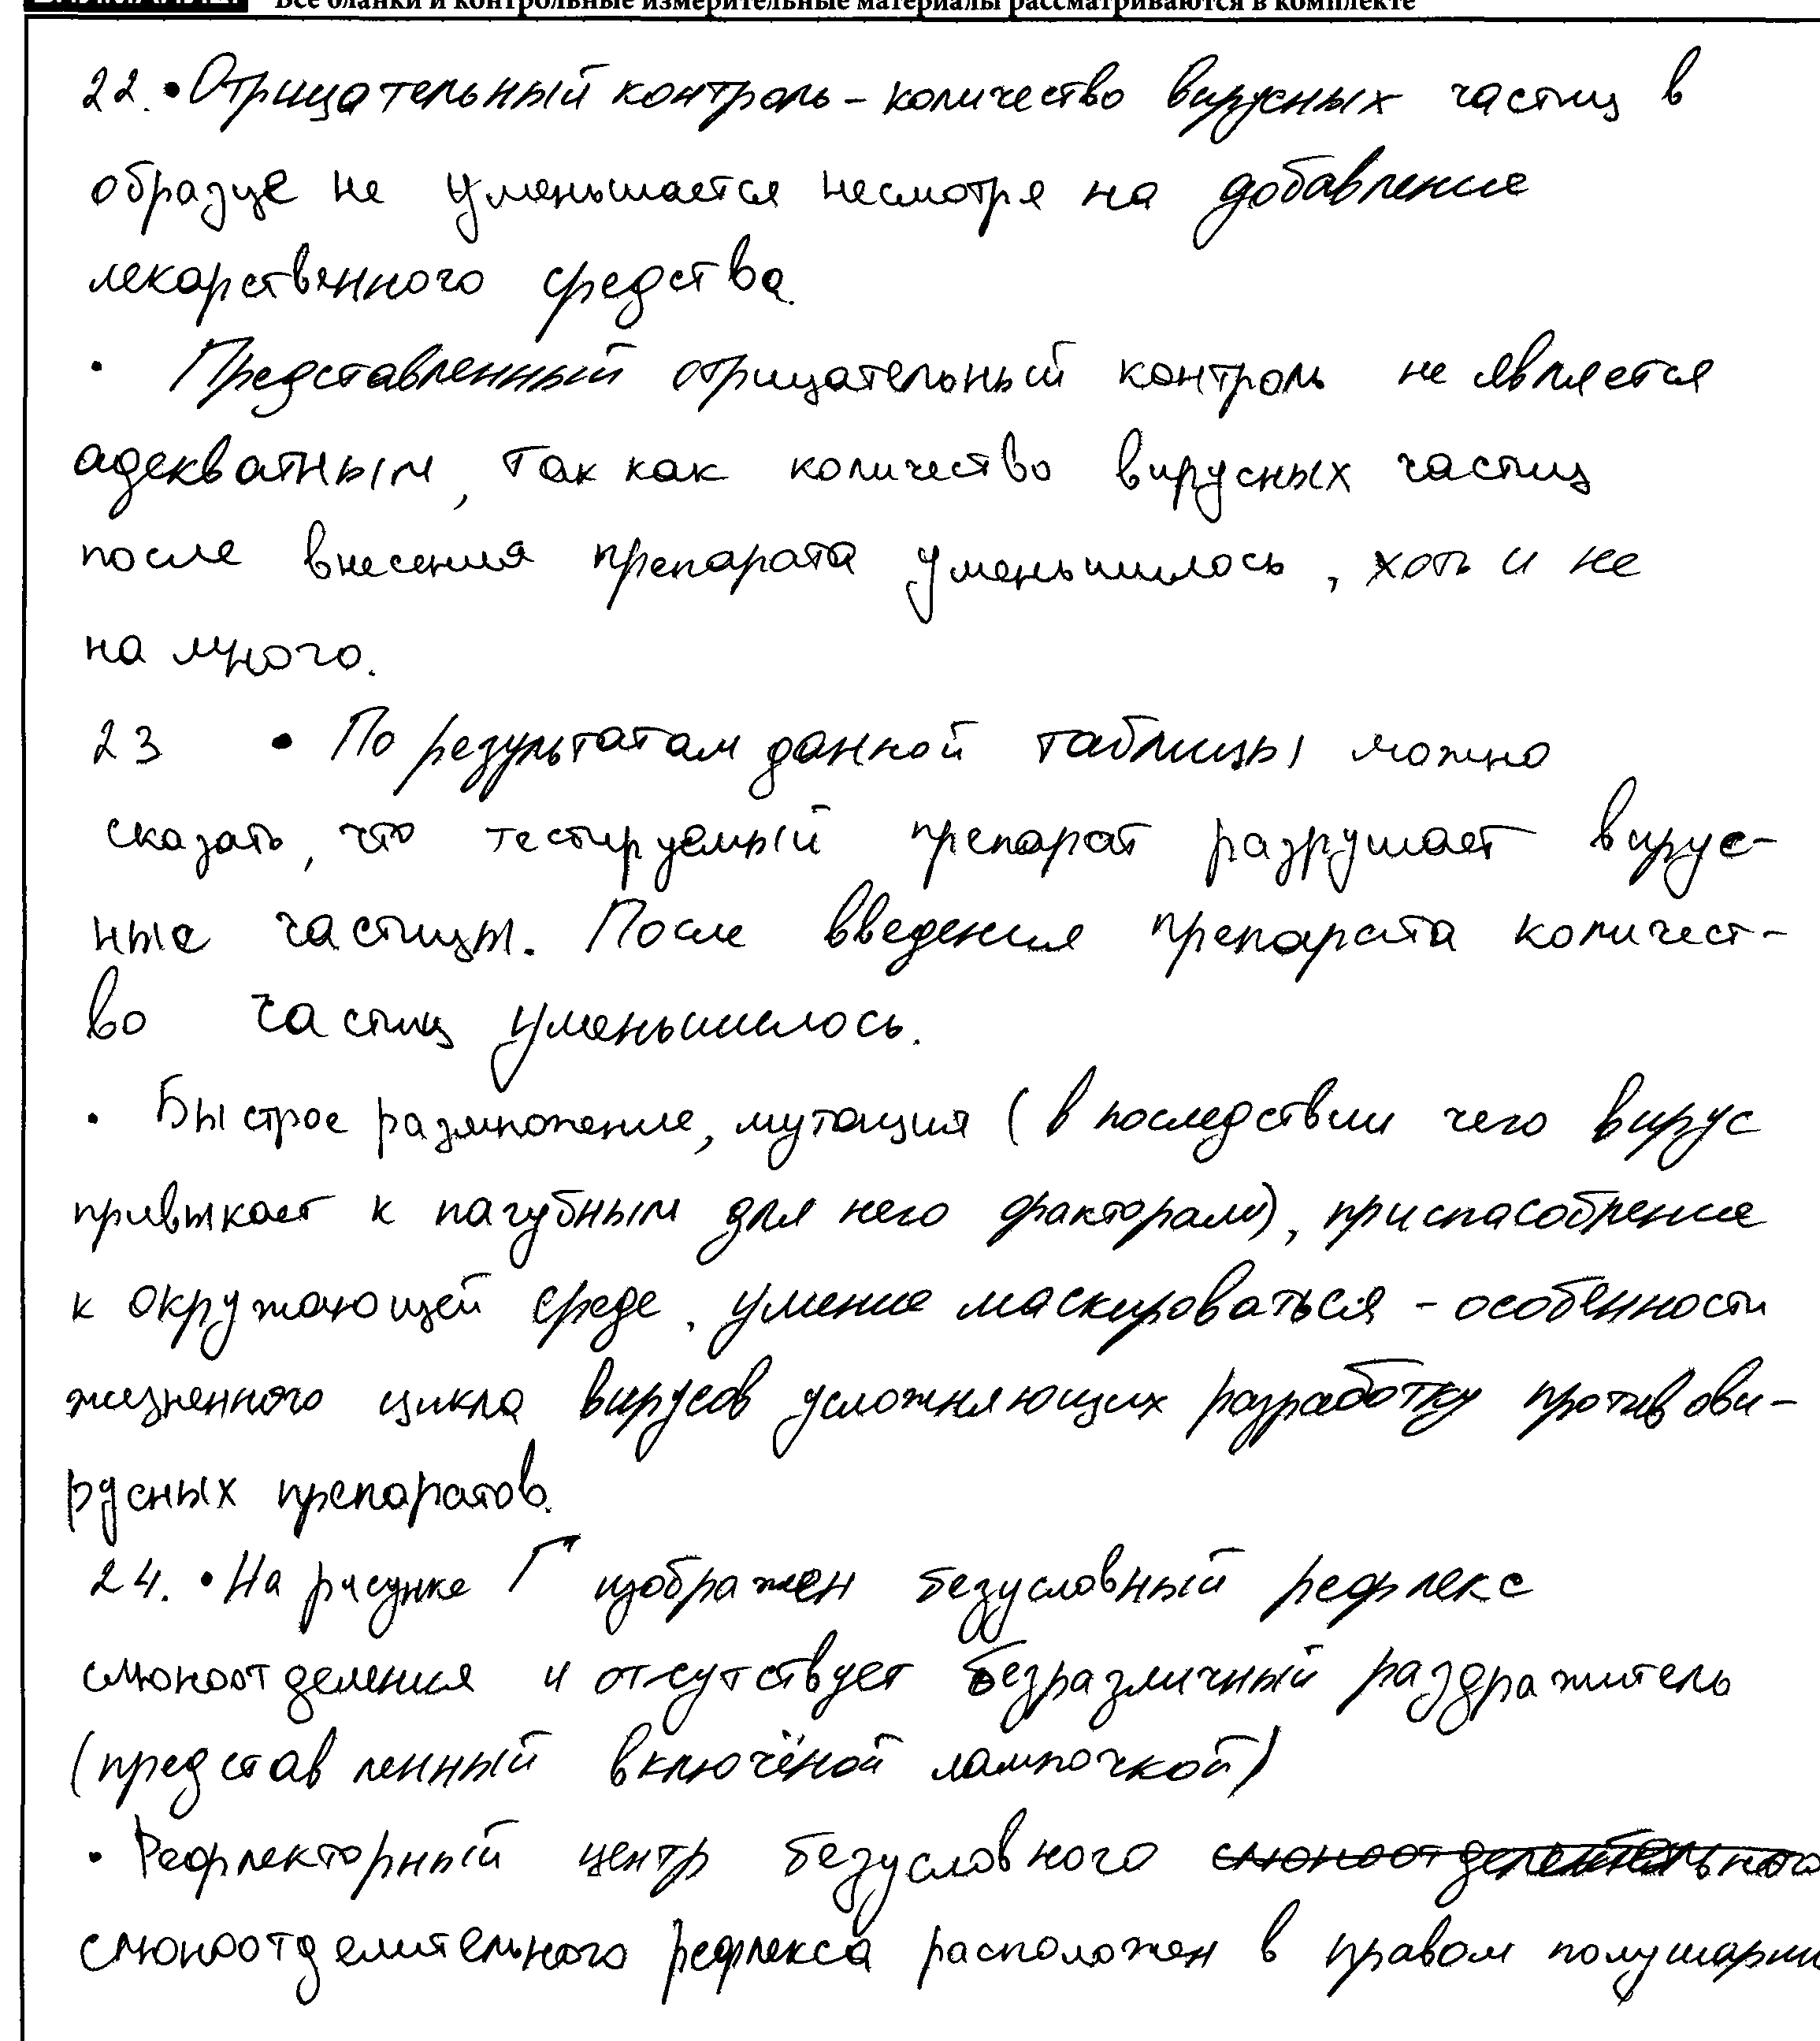 Все бланки и контрольные измерительные материалы рассматриваются в комплекте
22. • Отрицательный контроль – количество вирусных частиц в
образце не уменьшается несмотря на добавление
лекарственного средства.
• Представленный отрицательный контроль не является
адекватным, так как количество вирусных частиц
после внесения препарата уменьшилось, хоть и не
на много.
23 • По результатам данной таблицы можно
сказать, что тестируемый препарат разрушает вирус-
ные частицы. После введения препарата количест-
во частиц уменьшилось.
• Быстрое размножение, мутация (в последствии чего вирус
привыкает к пагубным для него факторам), приспасобрение
к окружающей среде, умение маскироваться – особенности
жизненного цикла вирусов усложняющих разработку противови-
русных препаратов.
24. • На рисунке Г изображен безусловный рефлекс
слюноотделения и отсутствует безразличный раздражитель
(представленный включёной лампочкой)
• Рефлекторный центр безусловного
слюноотделительного рефлекса расположен в правом полушарии